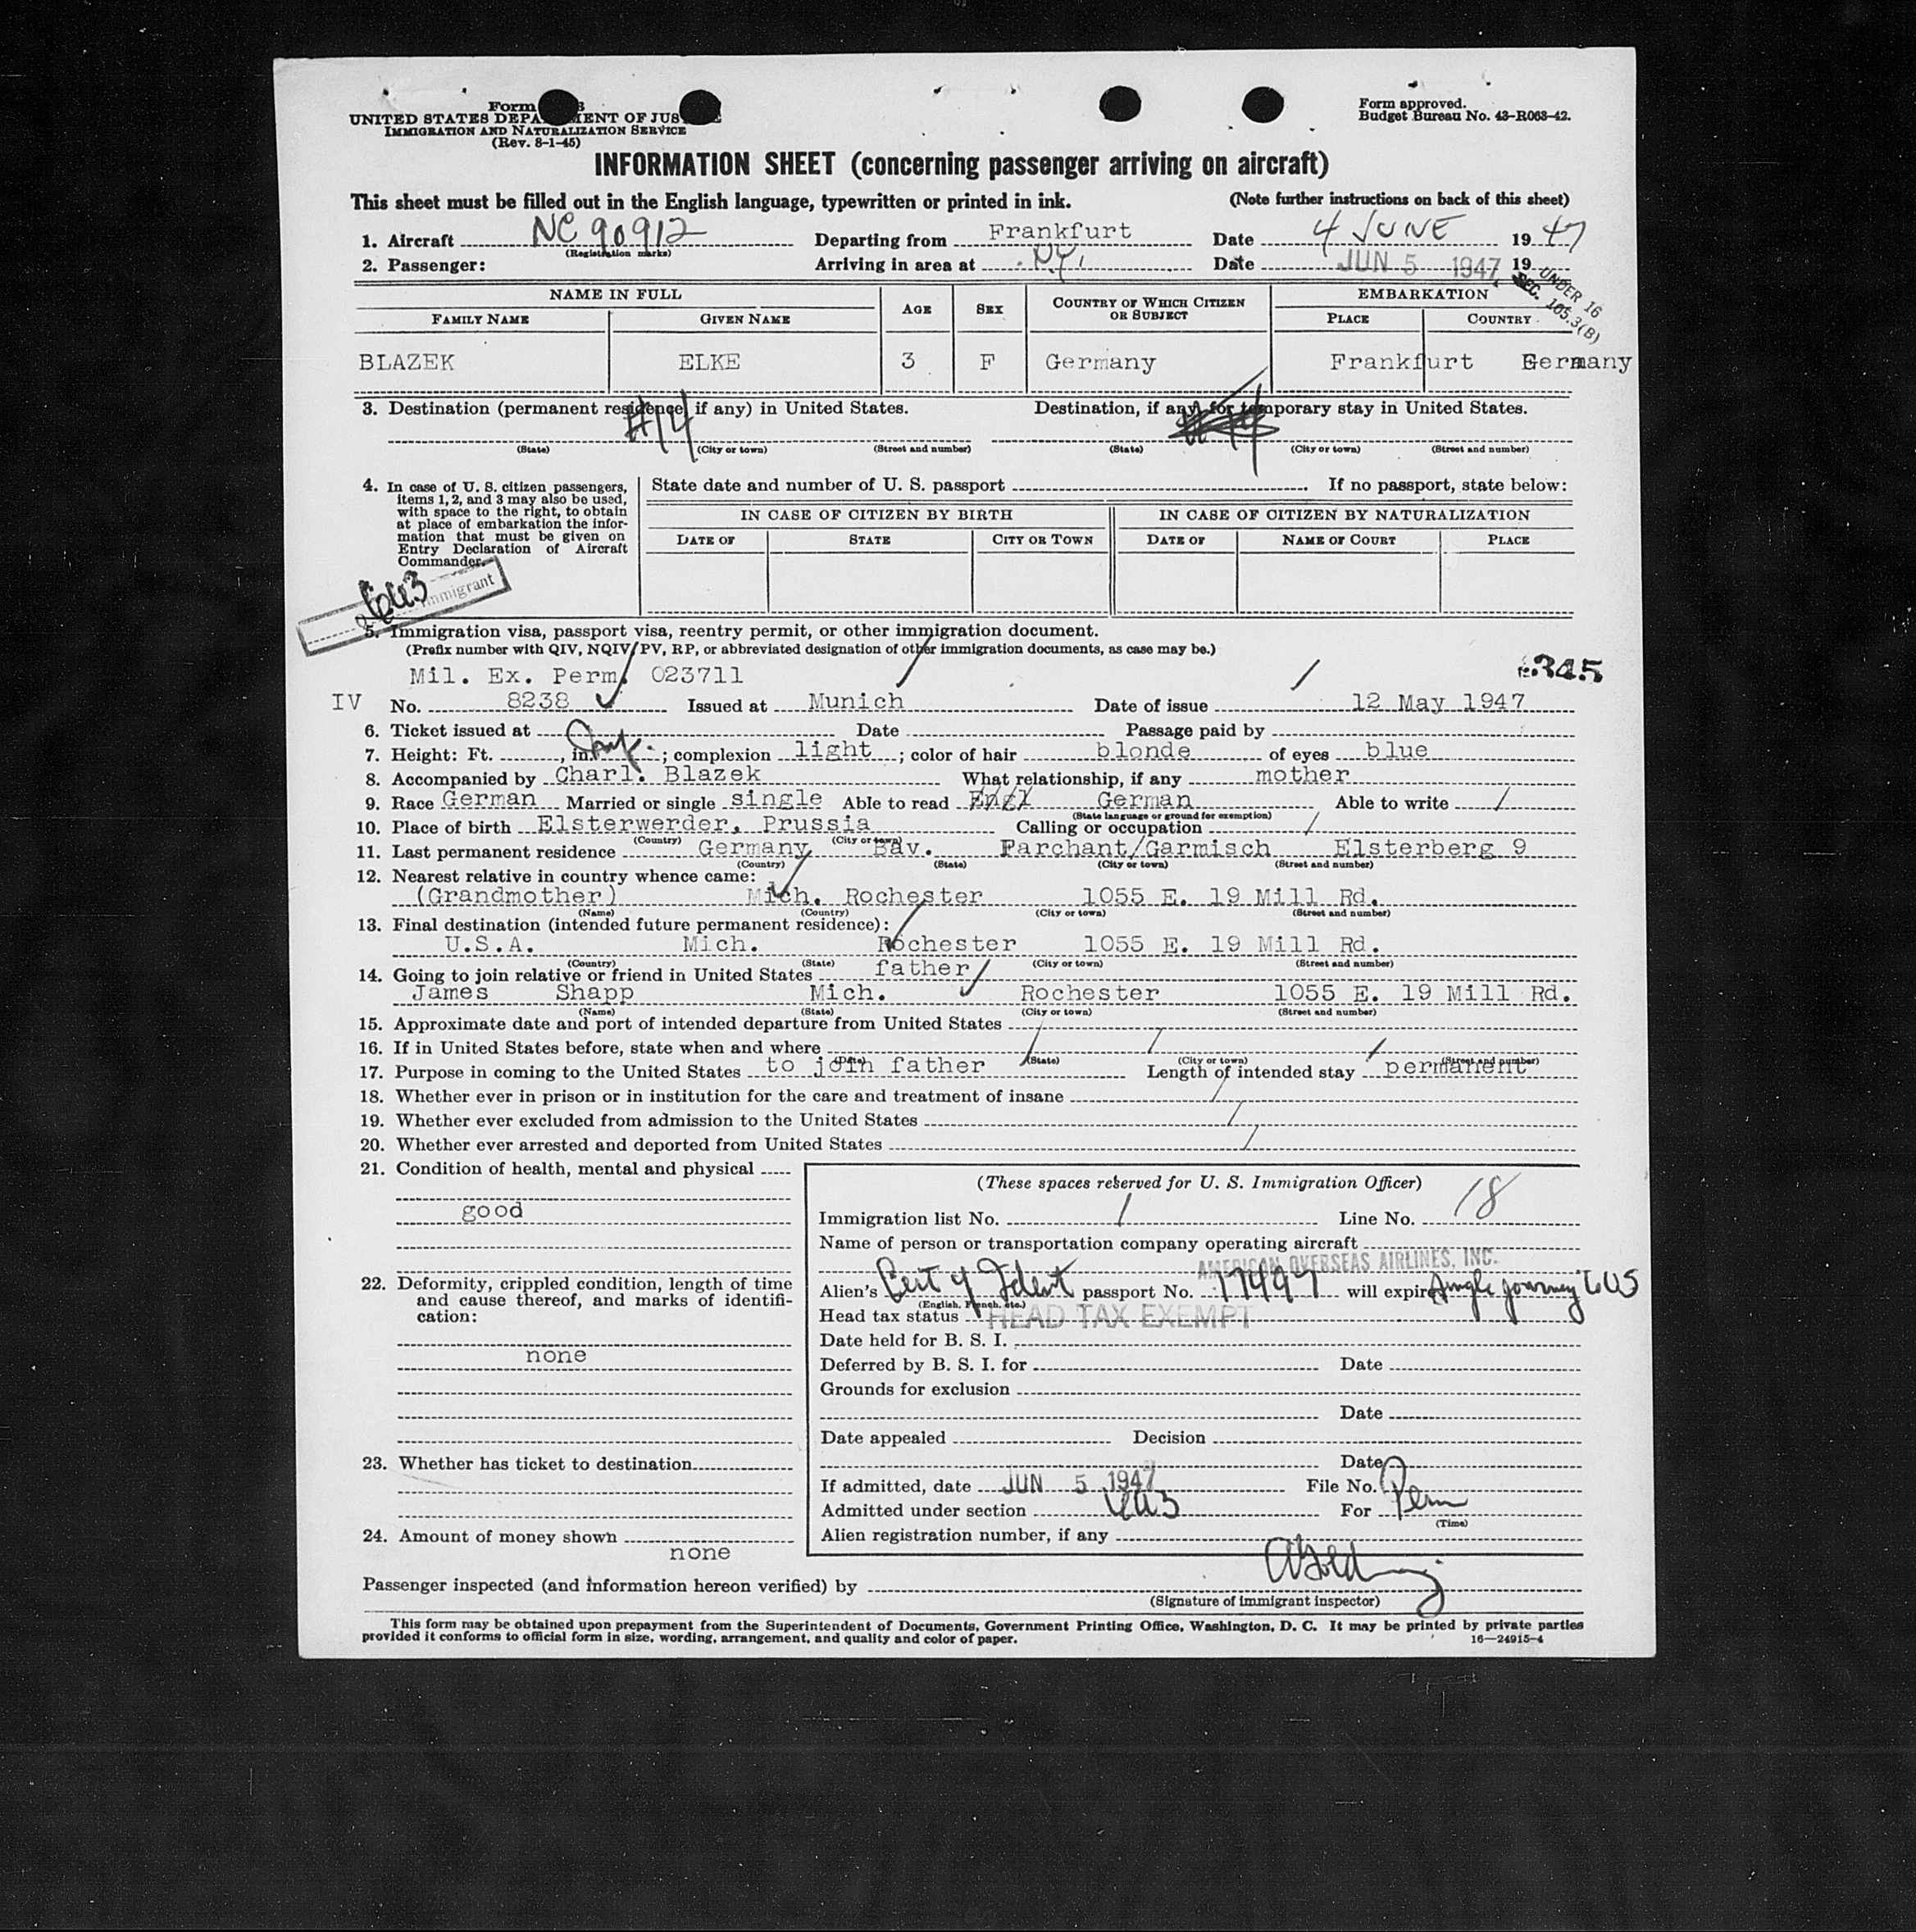 Form
UNITED STATES DEPARTMENT OF JUSTICE
IMMIGRATION AND NATURALIZATION SERVICE
(Rev. 8-1-45)
Form approved.
Budget Bureau No. 43-R063-42.
INFORMATION SHEET (concerning passenger arriving on aircraft)
This sheet must be filled out in the English language, typewritten or printed in ink. (Note further instructions on back of this sheet)
1. Aircraft NC 90912 Departing from Frankfurt Date 4 JUNE 1947
(Registration marks)
2. Passenger: Arriving in area at N.Y. Date JUN 5 1947 19
UNDER 16
SEC. 105.3(B)
NAME IN FULL AGE SEX COUNTRY OF WHICH CITIZEN OR SUBJECT EMBARKATION
FAMILY NAME GIVEN NAME PLACE COUNTRY
BLAZEK ELKE 3 F Germany Frankfurt Germany
3. Destination (permanent residence, if any) in United States. Destination, if any, for temporary stay in United States.
#14
(State) (City or town) (Street and number) (State) (City or town) (Street and number)
4. In case of U. S. citizen passengers,
items 1, 2, and 3 may also be used,
with space to the right, to obtain
at place of embarkation the infor-
mation that must be given on
Entry Declaration of Aircraft
Commander.
State date and number of U. S. passport If no passport, state below:
IN CASE OF CITIZEN BY BIRTH IN CASE OF CITIZEN BY NATURALIZATION
DATE OF STATE CITY OR TOWN DATE OF NAME OF COURT PLACE
6a3 Immigrant
5. Immigration visa, passport visa, reentry permit, or other immigration document.
(Prefix number with QIV, NQIV, PV, RP, or abbreviated designation of other immigration documents, as case may be.)
Mil. Ex. Perm. 023711
345
IV No. 8238 Issued at Munich Date of issue 12 May 1947
6. Ticket issued at Date Passage paid by
7. Height: Ft. , in. ; complexion light ; color of hair blonde of eyes blue
8. Accompanied by Charl. Blazek What relationship, if any mother
9. Race German Married or single single Able to read Engl German Able to write /
(State language or ground for exemption)
10. Place of birth Elsterwerder, Prussia Calling or occupation /
(Country) (City or town)
11. Last permanent residence Germany Bav. Farchant/Garmisch Elsterberg 9
(Country) (State) (City or town) (Street and number)
12. Nearest relative in country whence came:
(Grandmother) Mich. Rochester 1055 E. 19 Mill Rd.
(Name) (Country) (City or town) (Street and number)
13. Final destination (intended future permanent residence):
U.S.A. Mich. Rochester 1055 E. 19 Mill Rd.
(Country) (State) (City or town) (Street and number)
14. Going to join relative or friend in United States father
James Shapp Mich. Rochester 1055 E. 19 Mill Rd.
(Name) (State) (City or town) (Street and number)
15. Approximate date and port of intended departure from United States
16. If in United States before, state when and where
(Date) (State) (City or town) (Street and number)
17. Purpose in coming to the United States to join father Length of intended stay permanent
18. Whether ever in prison or in institution for the care and treatment of insane /
19. Whether ever excluded from admission to the United States /
20. Whether ever arrested and deported from United States /
21. Condition of health, mental and physical
good
22. Deformity, crippled condition, length of time
and cause thereof, and marks of identifi-
cation:
none
23. Whether has ticket to destination
24. Amount of money shown
none
(These spaces reserved for U. S. Immigration Officer)
Immigration list No. 1 Line No. 18
Name of person or transportation company operating aircraft
AMERICAN OVERSEAS AIRLINES, INC.
Alien's Cert of Ident passport No. 17497 will expire Single journey to US
(English, French, etc.)
Head tax status HEAD TAX EXEMPT
Date held for B. S. I.
Deferred by B. S. I. for Date
Grounds for exclusion
Date
Date appealed Decision
Date
If admitted, date JUN 5 1947 File No.
Admitted under section 6a3 For Perm
(Time)
Alien registration number, if any
Passenger inspected (and information hereon verified) by
(Signature of immigrant inspector)
This form may be obtained upon prepayment from the Superintendent of Documents, Government Printing Office, Washington, D. C. It may be printed by private parties
provided it conforms to official form in size, wording, arrangement, and quality and color of paper. 16—24915-4